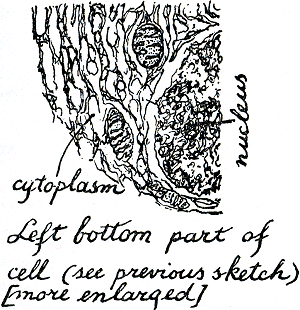 nucleus
cytoplasm
Left bottom part of
cell (see previous sketch)
[more enlarged]